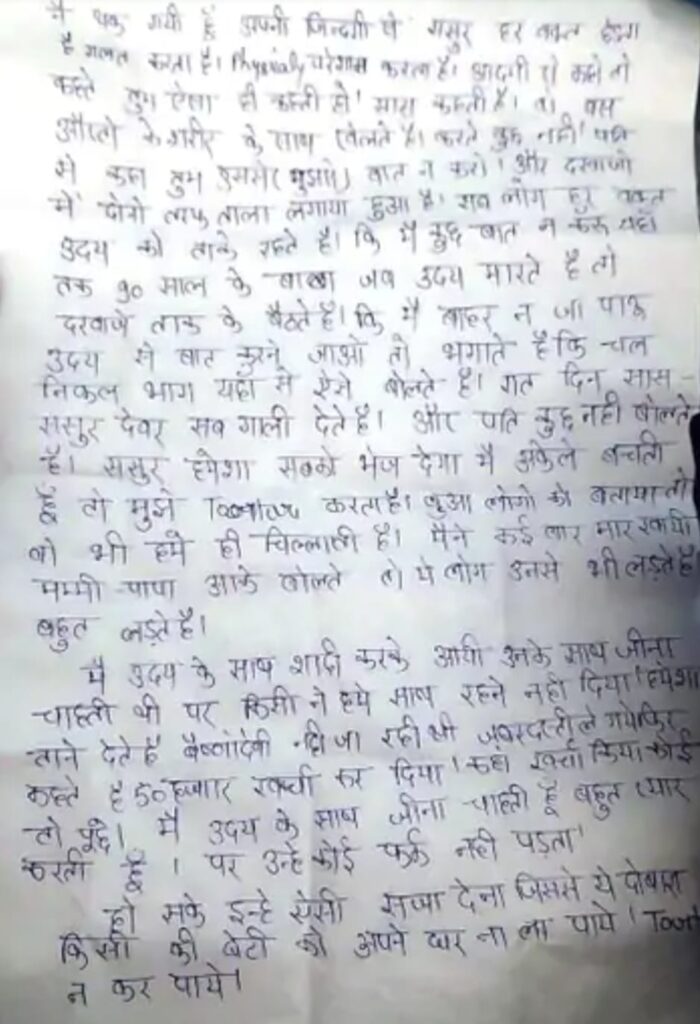 मै थक गयी हूँ अपनी जिन्दगी से ससुर हर वक्त
है गलत करता है। Physically परेशान करता है। आदमी से कहो तो
कहते तुम ऐसा ही कहती हो! मारा करती है। वो बस
औरतो के शरीर के साथ खेलते है। करते कुछ नही!
से कहा तुम इससे (मुझसे) बात न करो! और दरवाजो
में दोनो तरफ ताला लगाया हुआ है। सब लोग हर वक्त
उदय को ताके रहते है। कि मै कुछ बात न करू यहाँ
तक 90 साल के बाबा जब उदय मारते है तो
दरवाजे ताक के बैठते है। कि मै बाहर न जा पाऊ
उदय से बात करने जाओ तो भगाते है कि चल
निकल भाग यहाँ से ऐसे बोलते है। रात दिन सास -
ससुर देवर सब गाली देते है। और पति कुछ नही बोलते
है। ससुर हमेशा सबको भेज देगा मै अकेले बचती
हूँ तो मुझे करता है। बुआ लोगो को बताया तो
वो भी हमे ही चिल्लाती है। मैने कई बार मार खायी
मम्मी पापा आके बोलते तो ये लोग उनसे भी लड़ते है
बहुत लड़ते है।
मै उदय के साथ शादी करके आयी उनके साथ जीना
चाहती थी पर किसी ने हमे साथ रहने नही दिया! हमेशा
ताने देते है वैष्णोदेवी नही जा रही थी जबरदस्ती ले गये फिर
कहते है 50 हजार खर्चा कर दिया! कहा खर्चा किया कोई
तो पूछे। मै उदय के साथ जीना चाहती हूँ बहुत प्यार
करती हूँ । पर उन्हे कोई फर्क नही पड़ता!
हो सके इन्हे ऐसी सजा देना जिससे ये दोबारा
किसी की बेटी को अपने घर ना ला पाये!
न कर पाये।